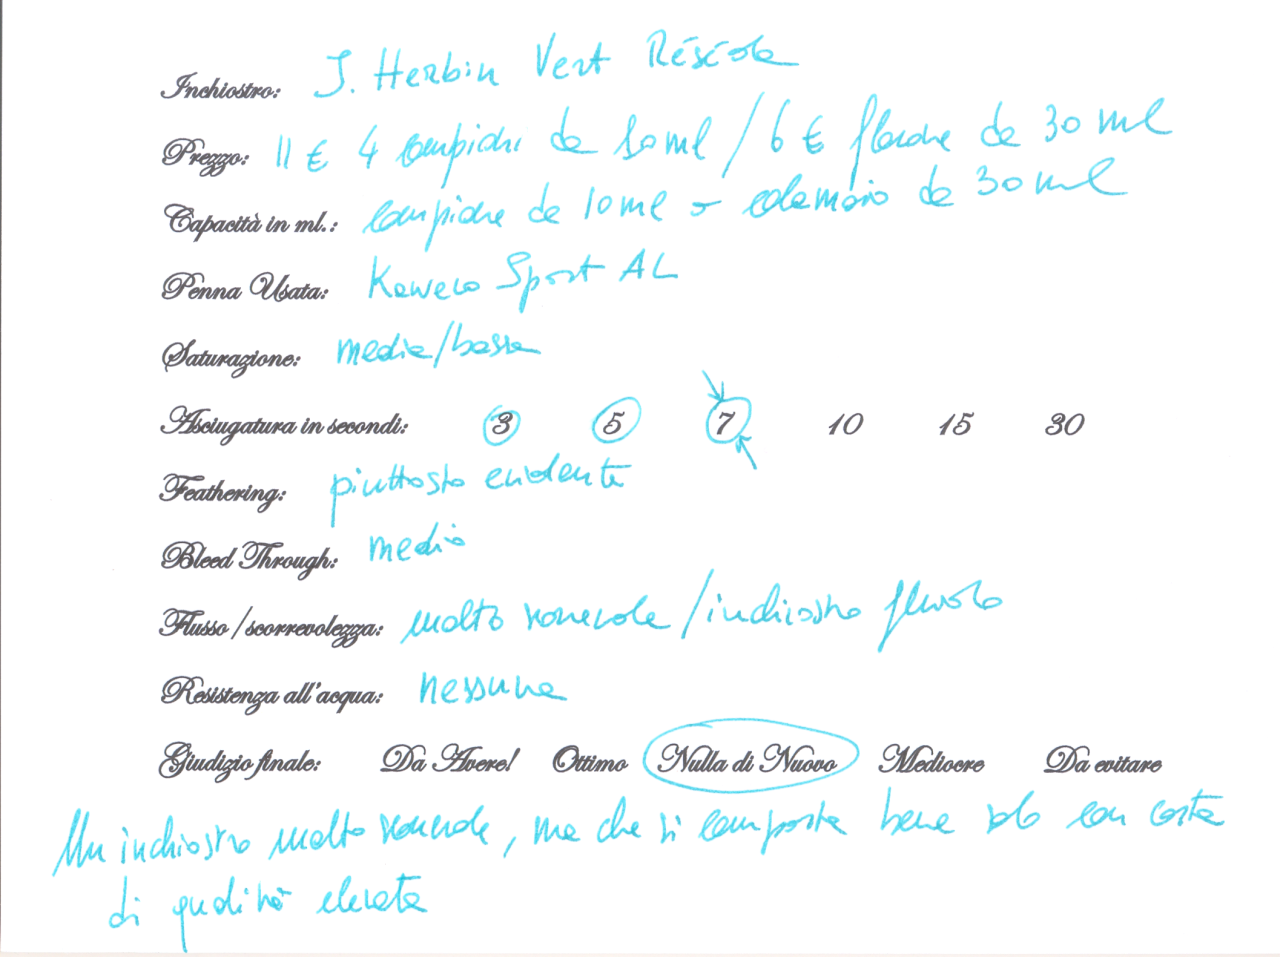 Inchiostro: J. Herbin Vert Réséda
Prezzo: 11 € 4 campioni da 10 ml / 6 € flacone da 30 ml
Capacità in ml.: campione da 10 ml o calamaio da 30 ml
Penna Usata: Kaweco Sport AL
Saturazione: media/bassa
Asciugatura in secondi: 3 5 7 10 15 30
Feathering: piuttosto evidente
Bleed Through: medio
Flusso/scorrevolezza: molto scorrevole / inchiostro fluido
Resistenza all'acqua: nessuna
Giudizio finale: Da Avere! Ottimo Nulla di Nuovo Mediocre Da evitare
Un inchiostro molto scorrevole, ma che si comporta bene solo con carta
di qualità elevata